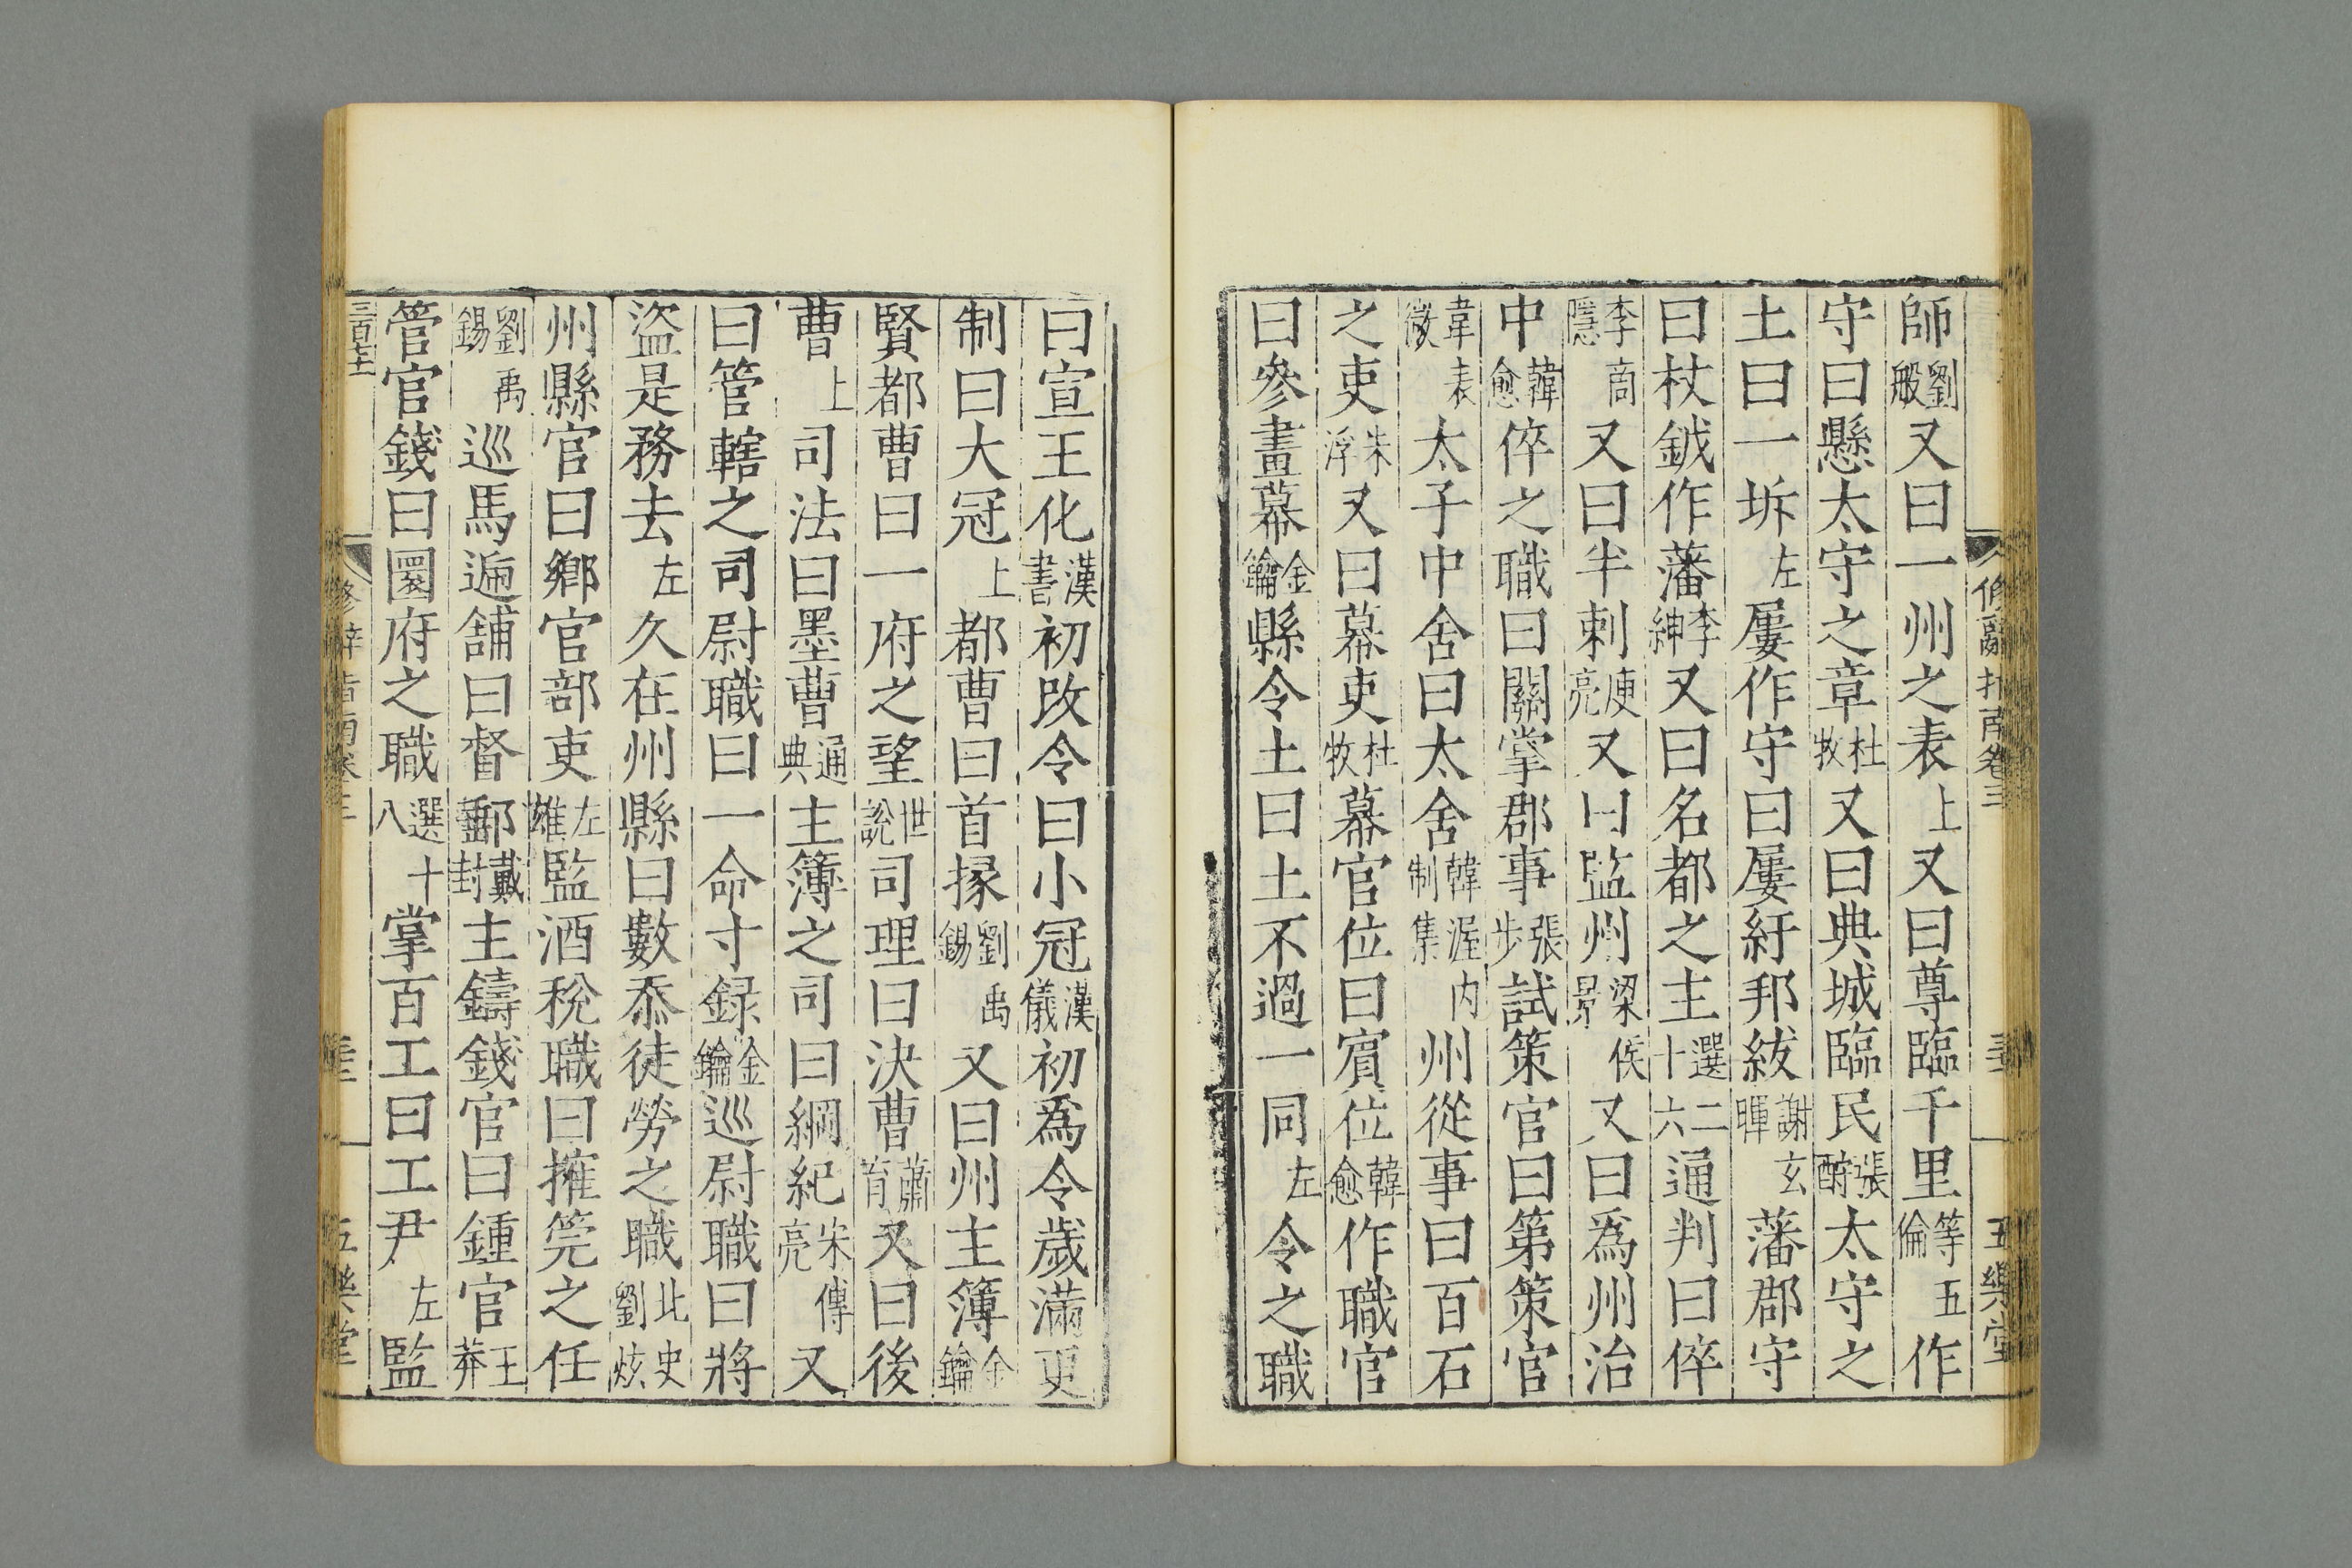 脩辭指南卷三 五樂堂
師劉般又曰一州之表上又曰尊臨千里等倫五作
守曰懸太守之章杜牧又曰典城臨民張酺太守之
土曰一圻左屢作守曰屢紆邦紱謝暉玄藩郡守
曰杖鉞作藩李紳又曰名都之主選十二六通判曰倅
李隱商又曰半刺庾亮又曰監州梁景侯又曰爲州治
中韓愈倅之職曰關掌郡事張步試策官曰第策官
韋微表太子中舍曰太舍韓制渥集內州從事曰百石
之吏朱浮又曰幕吏杜牧幕官位曰賓位韓愈作職官
曰參畫幕金鑰縣令土曰土不過一同左令之職
曰宣王化漢書初改令曰小冠漢儀初爲令歲滿更
制曰大冠上都曹曰首掾劉錫禹又曰州主簿金鑰
賢都曹曰一府之望世說司理曰決曹蕭育又曰後
曹上司法曰墨曹通典主簿之司曰綱紀宋亮傳又
曰管轄之司尉職曰一命寸録金鑰巡尉職曰將
盜是務去左久在州縣曰數忝徒勞之職北劉史炫
州縣官曰鄉官部吏左雄監酒稅職曰搉筦之任
劉錫禹巡馬遞舖曰督郵書戴封主鑄錢官曰鍾官王莽
管官錢曰圜府之職選八十掌百工曰工尹左監
五樂堂